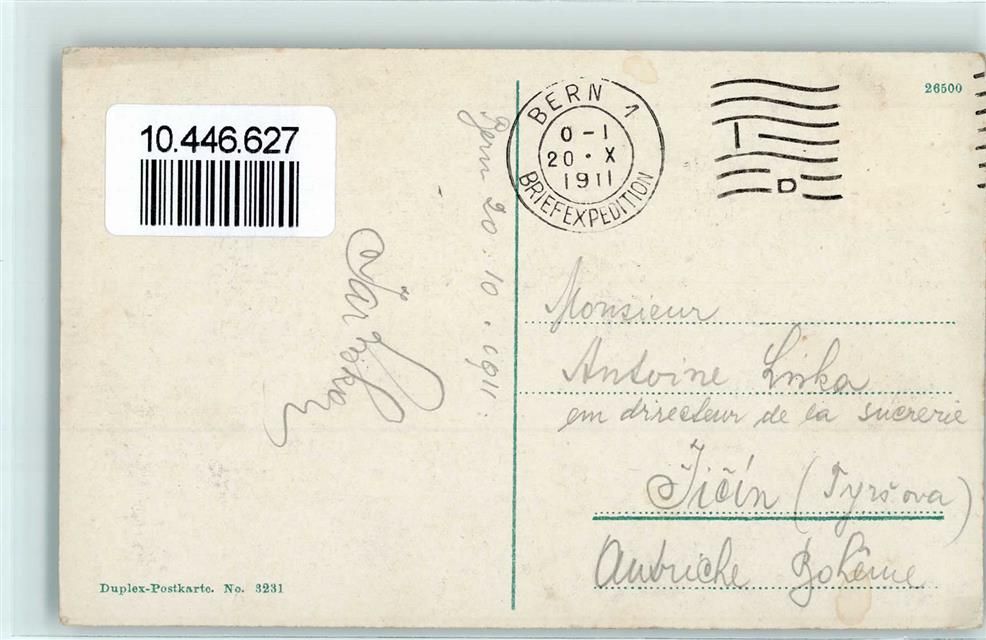 10.446.627
Bern 20.10.1911.
BERN 1
0-1
20·X
1911
BRIEFEXPEDITION
D
26500
Monsieur
Antoine Linka
em directeur de la sucrerie
Jičín (Tyršova)
Autriche Bohême
Duplex-Postkarte. No. 3231